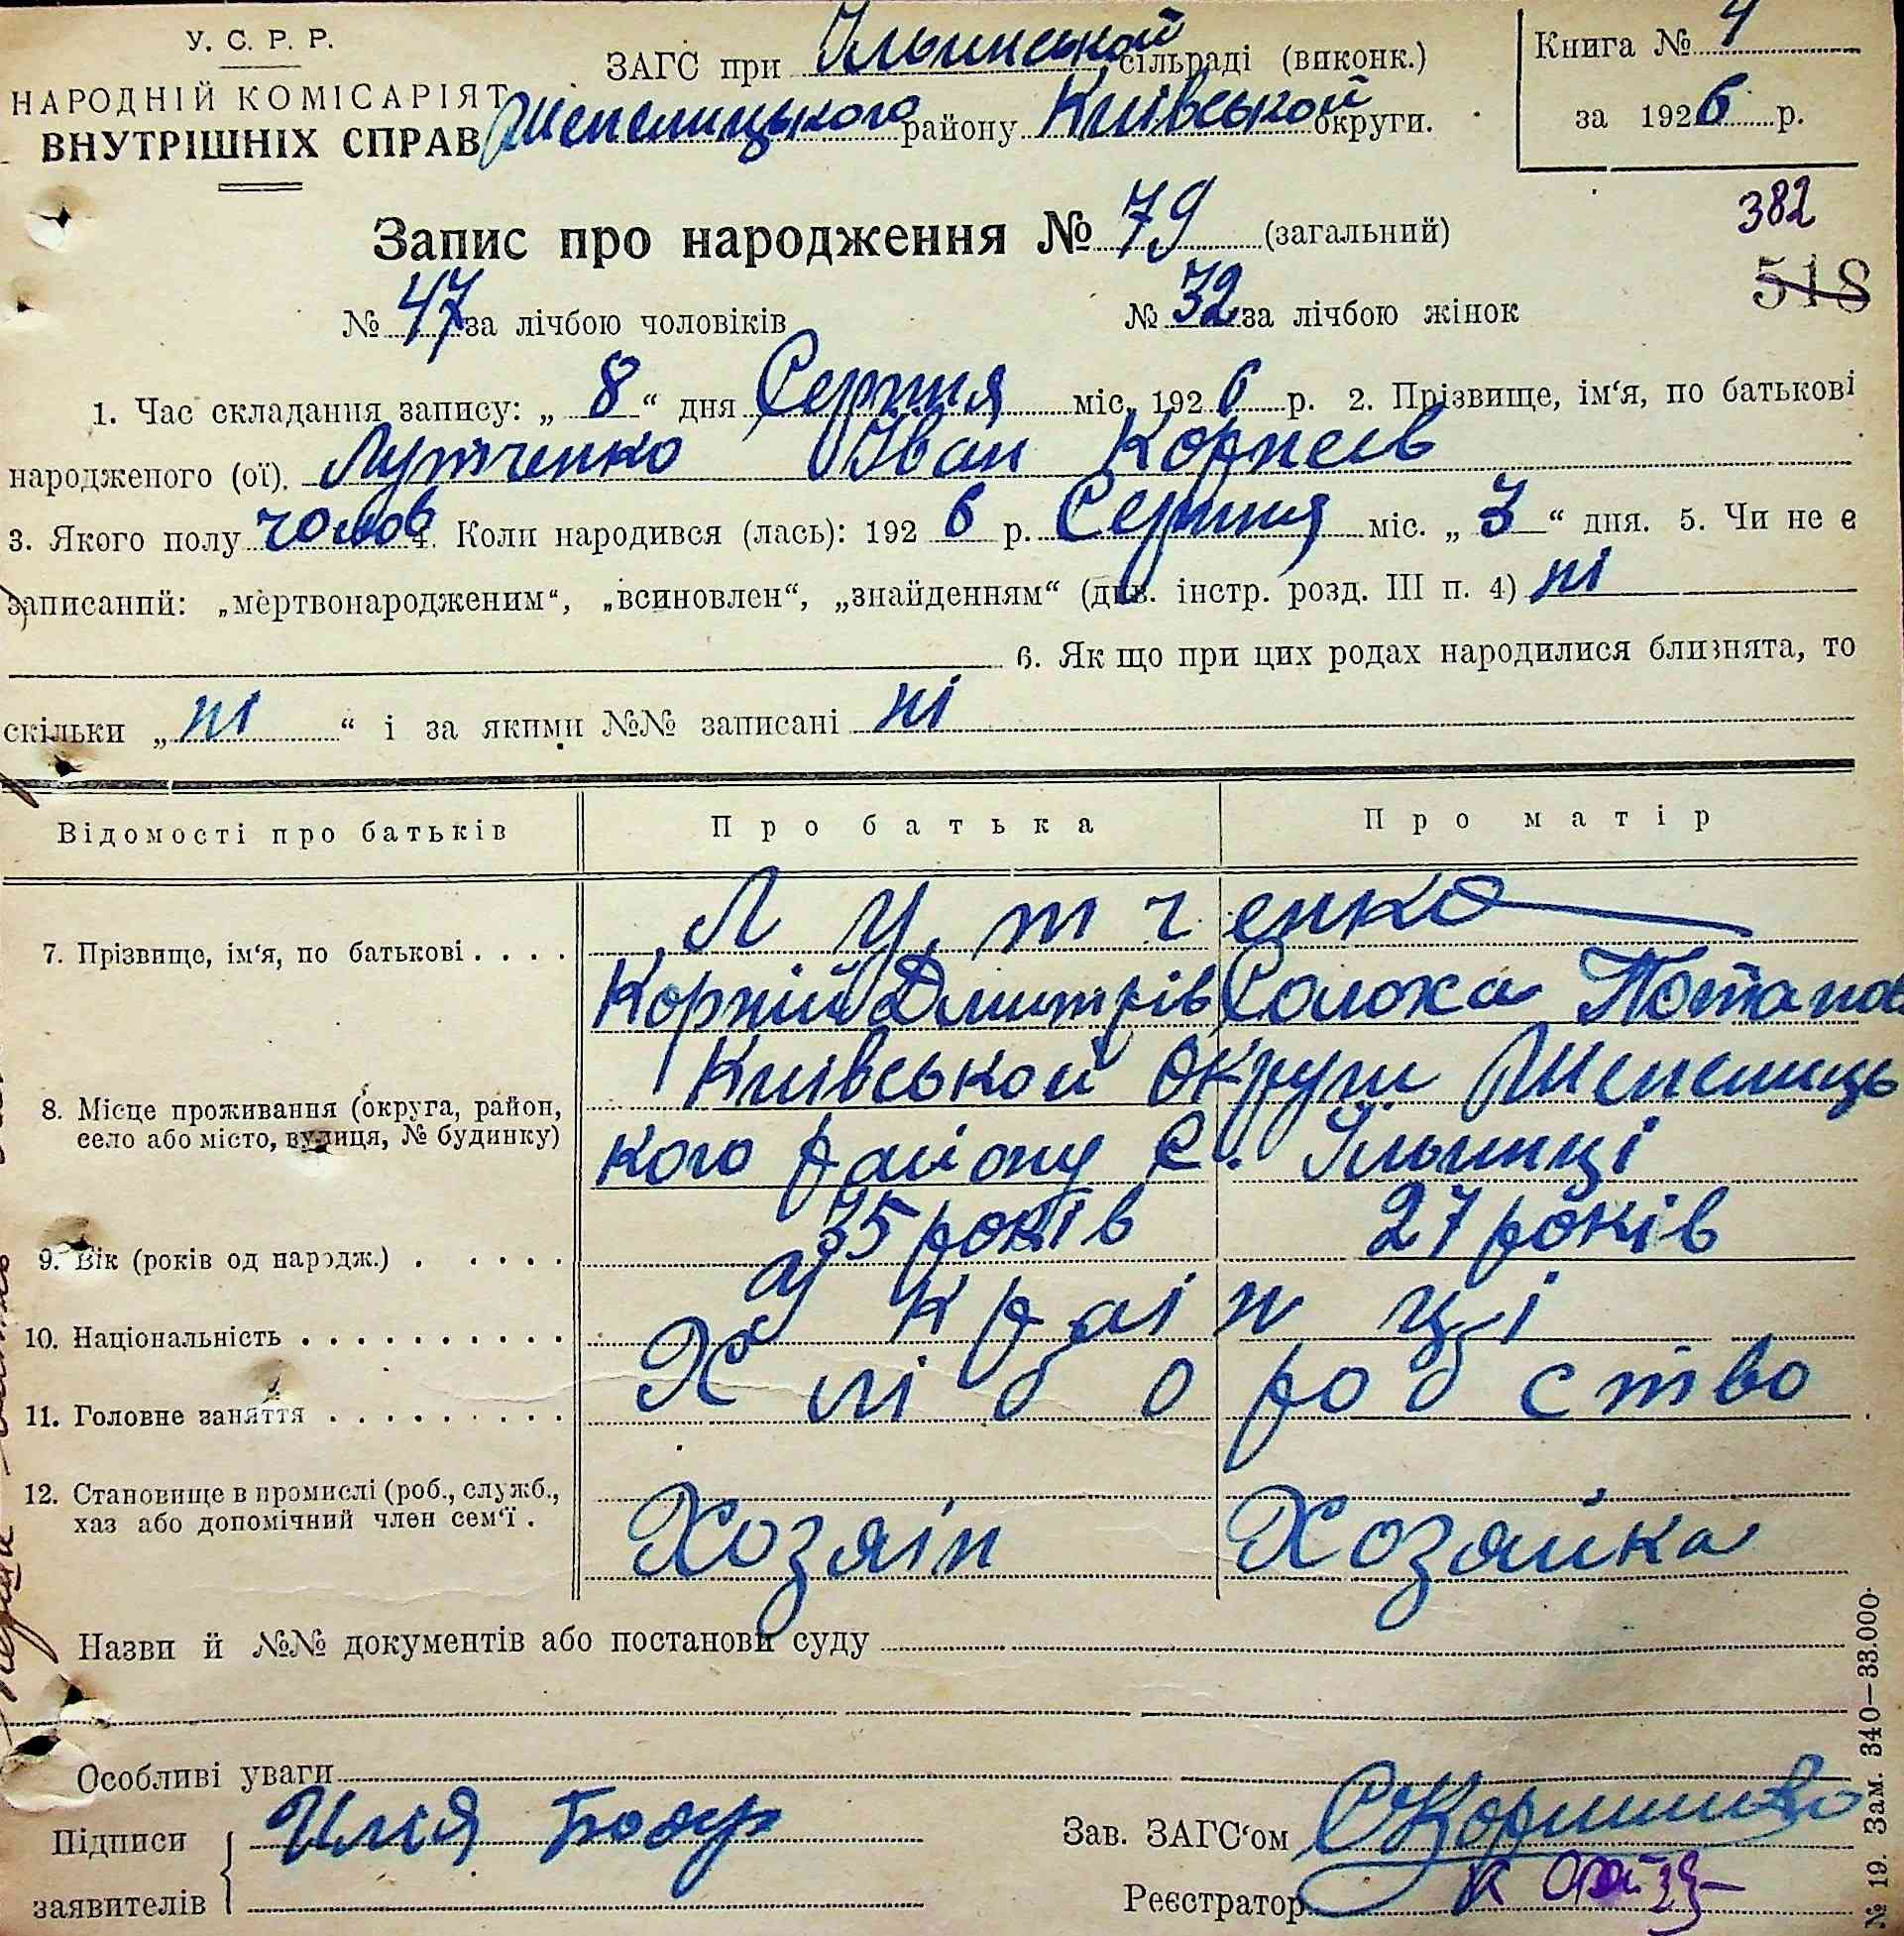 У. С. Р. Р.
НАРОДНІЙ КОМІСАРІЯТ
ВНУТРІШНІХ СПРАВ
ЗАГС при Ільинськой сільраді (виконк.)
Шепелицького району Київськой округи.
Книга № 4
за 1926 р.
382
518
Запис про народження № 79 (загальний)
№ 47 за лічбою чоловіків № 32 за лічбою жінок
1. Час складання запису: „ 8 “ дня Серпня міс. 1926 р. 2. Прізвище, ім‘я, по батькові
народженого (ої). Лутченко Іван Корнеів
3. Якого полу чолов 4. Коли народився (лась): 192 6 р. Серпня міс. „ 3 “ дня. 5. Чи не є
записаний: „мертвонародженим“, „всиновлен“, „знайденням“ (див. інстр. розд. III п. 4) ні
6. Як що при цих родах народилися близнята, то
скільки „ ні “ і за якими №№ записані ні
Відомості про батьків Про батька Про матір
7. Прізвище, ім‘я, по батькові . . . . Лутченко
Корній Дмитрів Солоха Потапов
8. Місце проживання (округа, район, Київськой округи Шепелиць
село або місто, вулиця, № будинку) кого району С. Ільинці
9. Вік (років од народж.) . . . . . 35 років 27 років
10. Національність . . . . . . . . . . Українці
11. Головне заняття . . . . . . . . . Хліборобство
12. Становище в промислі (роб., служб.,
хаз або допомічний член сем‘ї . Хозяін Хозяйка
Назви й №№ документів або постанови суду
Особливі уваги
Підписи заявителів Илія
Зав. ЗАГС‘ом
Реєстратор
№ 19. Зам. 340—33.000.